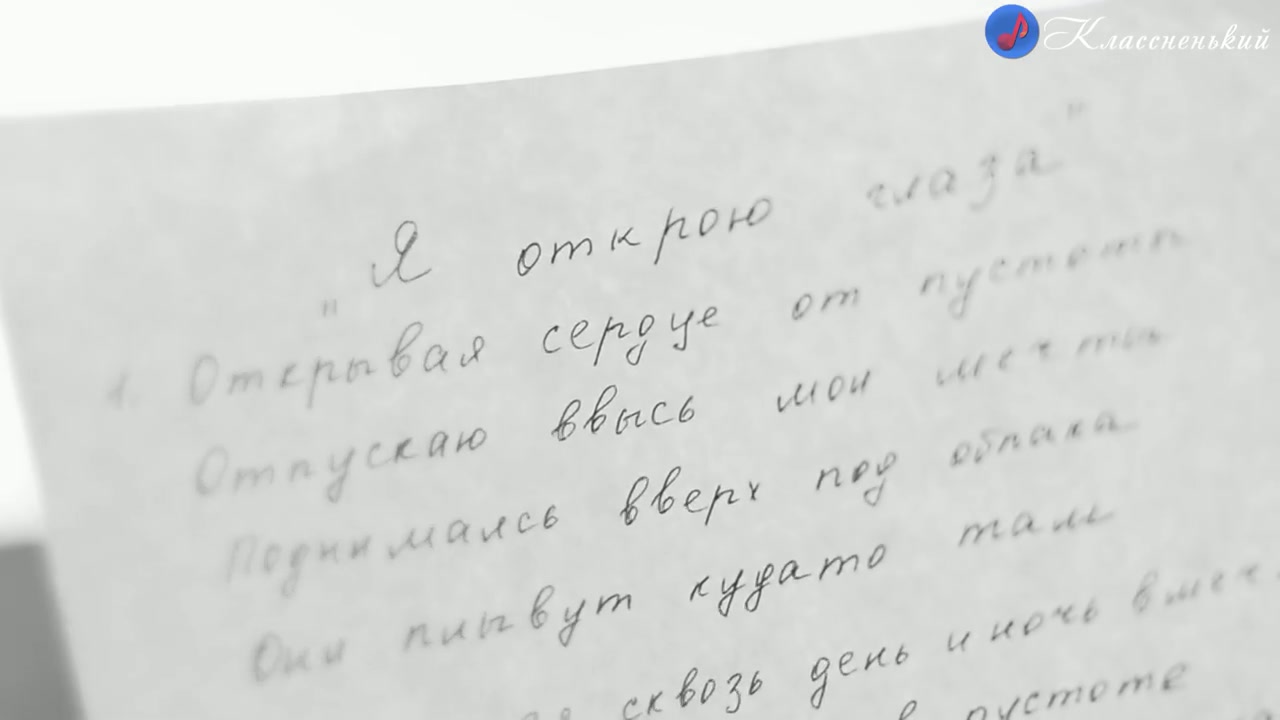 Классненький
"Я открою глаза"
1. Открывая сердце от пустоты
Отпускаю ввысь мои мечты
Поднимаясь вверх под облака
Они плывут кудато там
сквозь день и ночь
в пустоте